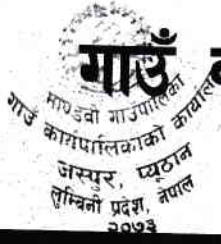 गाउँ
माण्डवी गाउँपालिका
गाउँ कार्यपालिकाको कार्यालय
जस्पुर, प्यूठान
लुम्बिनी प्रदेश, नेपाल
२०७३